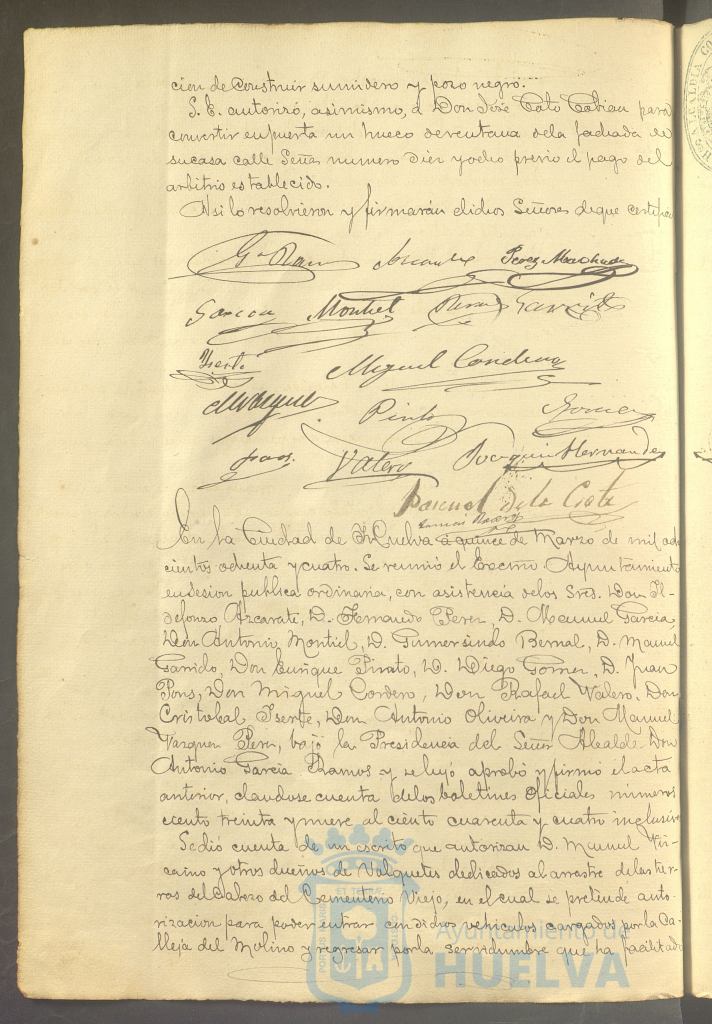 cion de Construir sumidero y pozo negro.
S. E. autorizó, asimismo, a Don José Cato Cabian para
convertir en puerta un hueco de ventana de la fachada de
su casa calle Señas numero diez y ocho previo el pago del
arbitrio establecido.
Asi lo resolvieron y firmarán dichos Señores de que certifico
Ga Ramos Azcarate Perez Machado
Garcia Montiel Bernal Garrido
Iserte Miguel Cordero
M Vazquez Pinto Gomez
Pons Valero Joaquin Hernandez
Pascual de la Corte
En la Ciudad de Huelva a quince de Marzo de mil ocho
cientos ochenta y cuatro. Se reunió el Excmo Ayuntamiento
en sesion publica ordinaria, con asistencia de los Sres. Don Il-
defonso Azcarate, D. Fernando Perez, D. Manuel Garcia,
Don Antonio Montiel, D. Gumersindo Bernal, D. Manuel
Garrido, Don Enrique Pinto, D. Diego Gomez, D. Juan
Pons, Don Miguel Cordero, Don Rafael Valero, Don
Cristobal Iserte, Don Antonio Oliveira y Don Manuel
Vazquez Perez, bajo la Presidencia del Señor Alcalde Don
Antonio Garcia Ramos y se leyó aprobó y firmó el acta
anterior, dandose cuenta de los boletines Oficiales numeros
ciento treinta y nueve al ciento cuarenta y cuatro inclusive
Se dió cuenta de un escrito que autorizan D. Manuel Viz-
caino y otros dueños de Volquetes dedicados al arrastre de las tier-
ras del Cabezo del Cementerio Viejo, en el cual se pretende auto-
rizacion para poder entrar con dichos vehiculos cargados por la Ca-
lleja del Molino y regresar por la servidumbre que ha facilitado
Ayuntamiento de
HUELVA